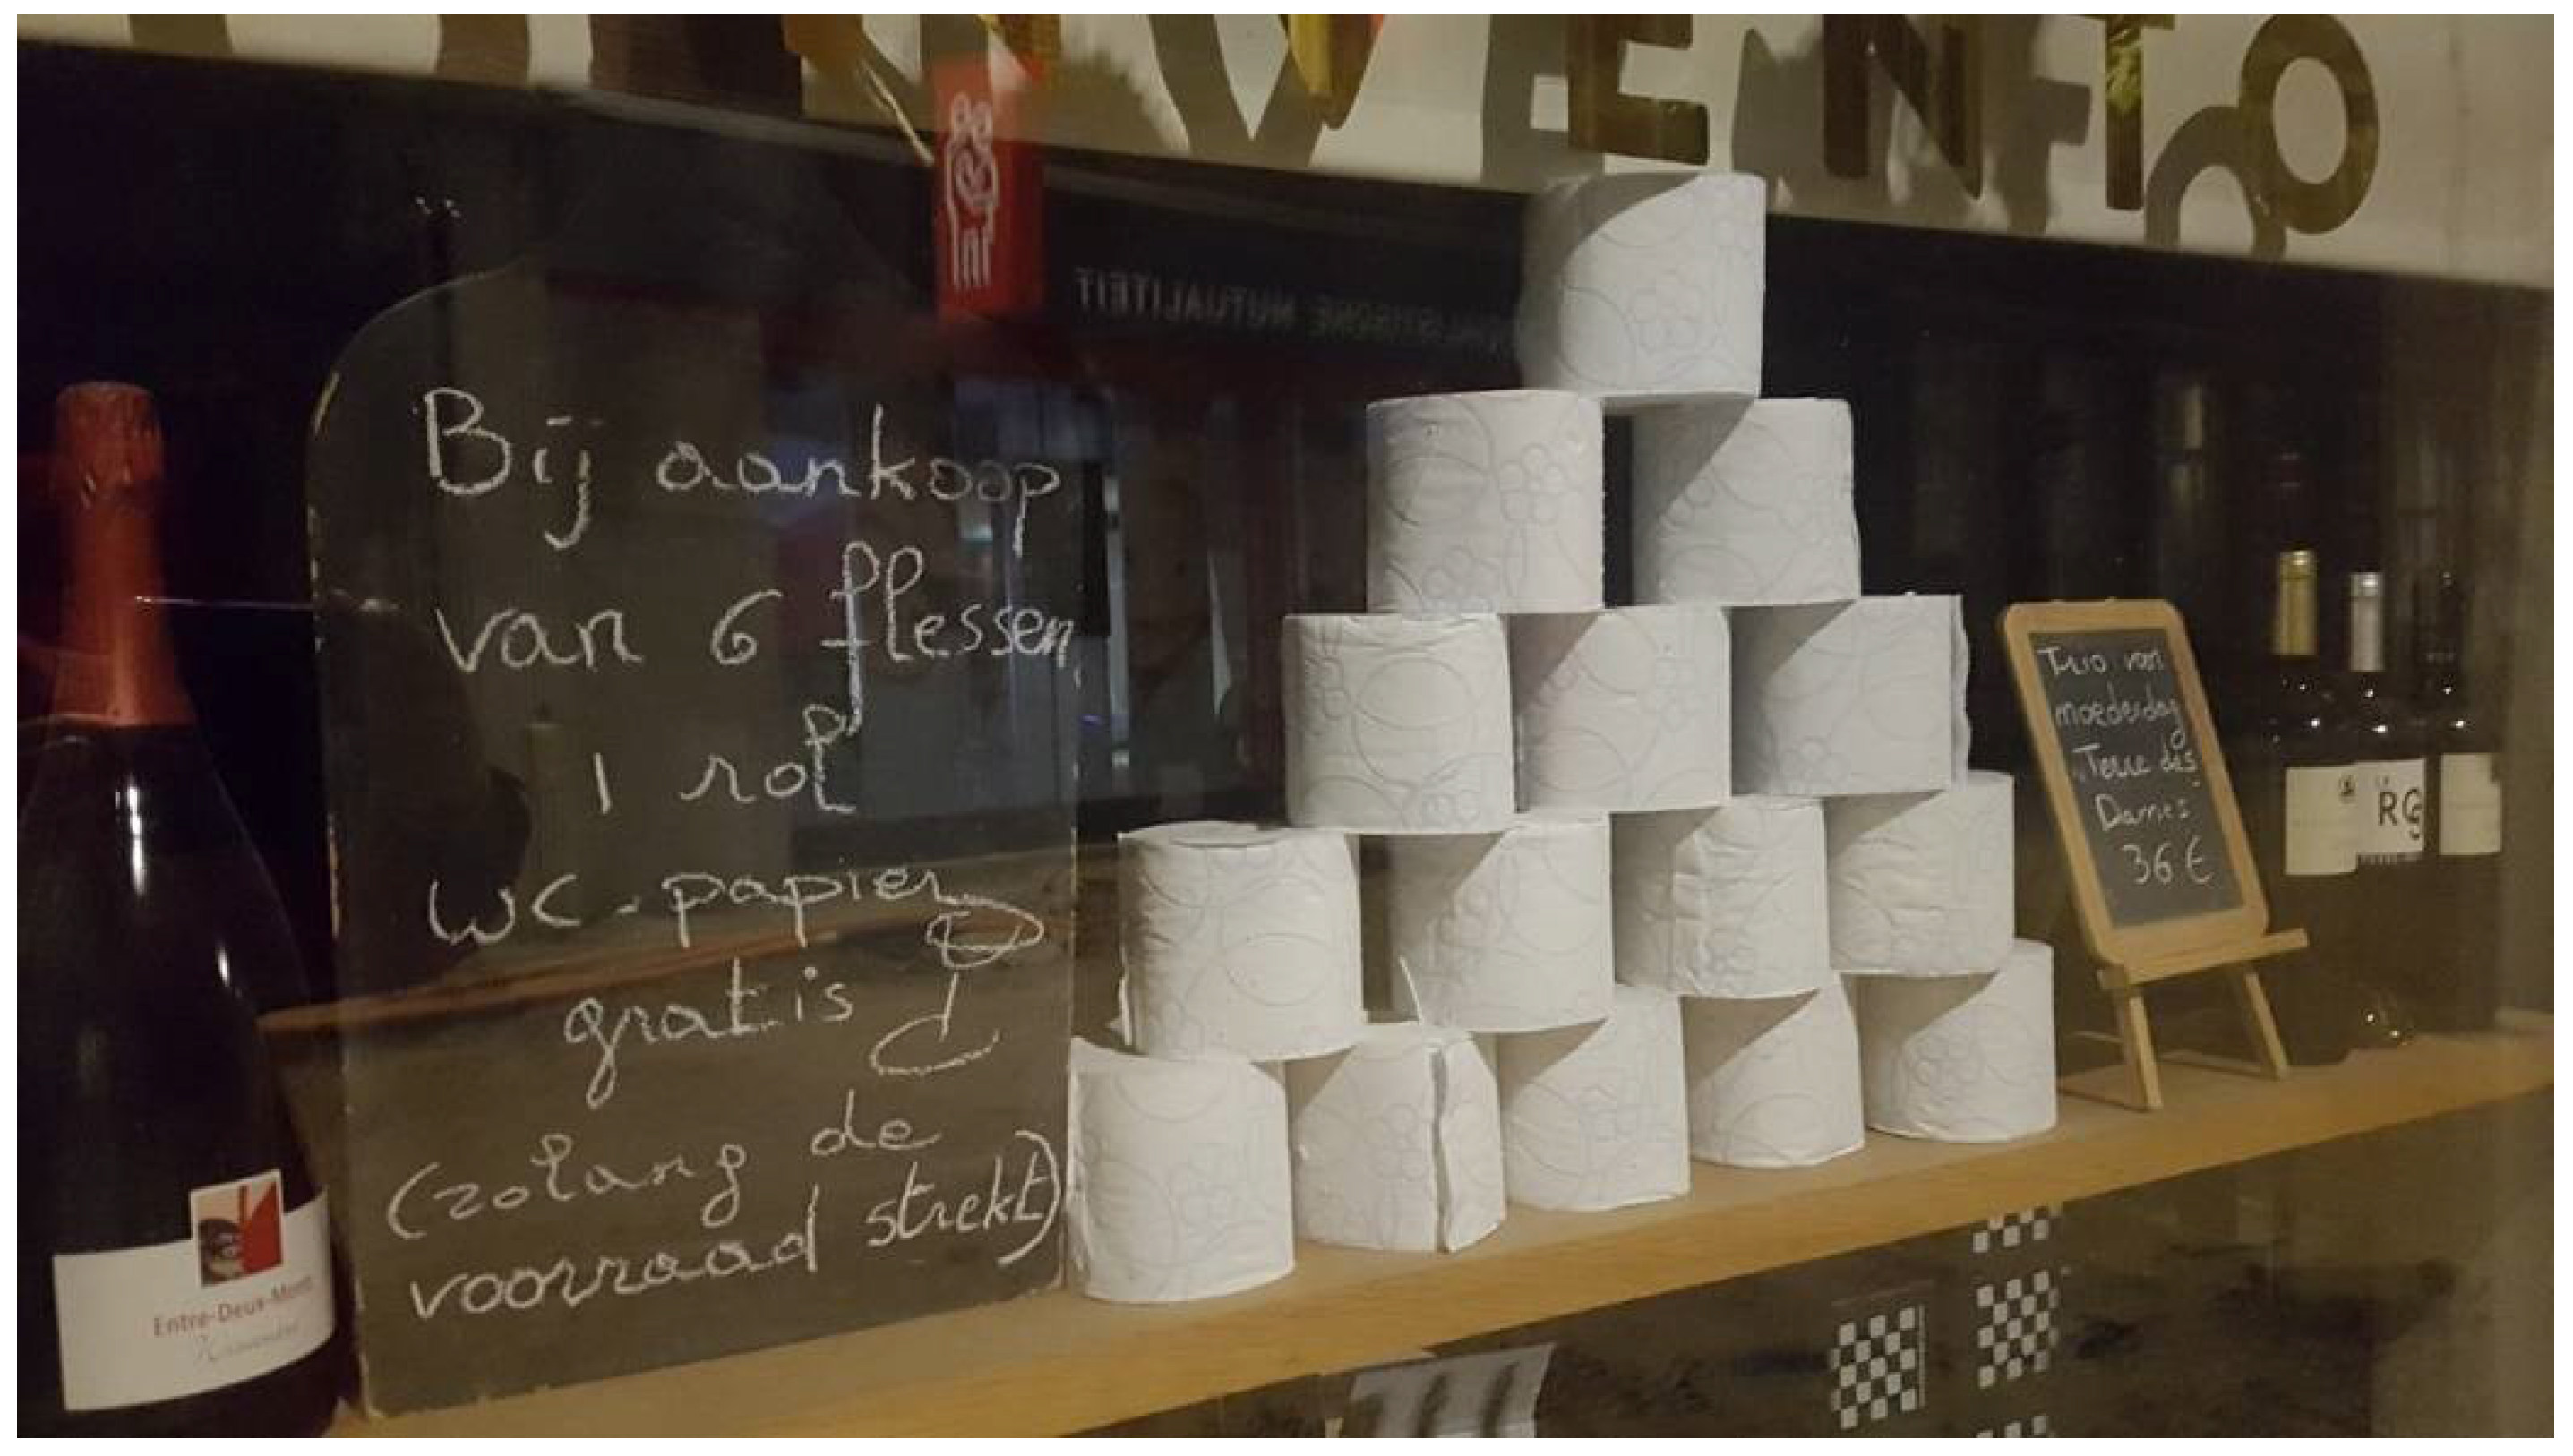 VENTO
Bij aankoop
van 6 flessen
1 rol
WC-papier
gratis
(zolang de
voorraad strekt)
Trio van
moederdag
Terre des
Dames
36 €
RG
Entre-Deux-Monts
MUTUALITEIT